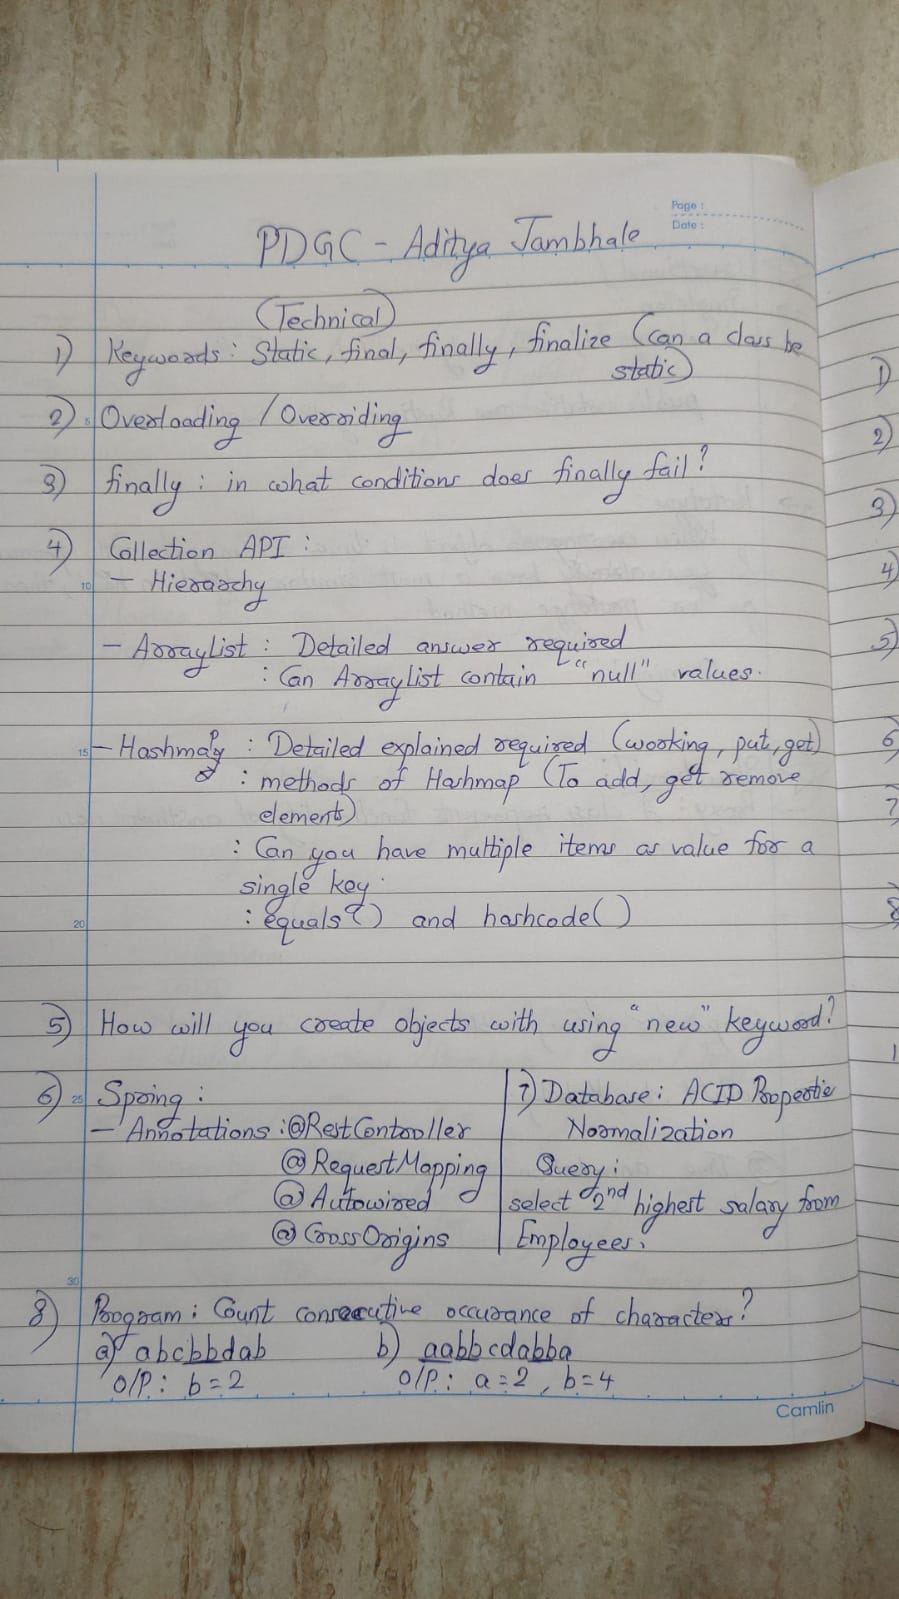 Page :
Date :
PDGC - Aditya Jambhale
(Technical)
1) Keywords : Static, final, finally, finalize (can a class be
static)
2) Overloading / Overriding
3) finally : in what conditions does finally fail?
4) Collection API :
10
- Hierarchy
- Arraylist : Detailed answer required
: Can Arraylist contain "null" values.
15
- Hashmap : Detailed explained required (working, put, get)
: methods of Hashmap (To add, get remove
elements)
: Can you have multiple items as value for a
single key.
20
: equals() and hashcode()
5) How will you create objects with using "new" keyword?
6) 25 Spring :
- Annotations : @RestController
@RequestMapping
@Autowired
@CrossOrigins
7) Database : ACID Propertie
Normalization
Query :
select 2nd highest salary from
Employees.
30
8) Program : Count consecutive occurance of character?
a) abcbbdab b) aabbcdabba
O/P : b = 2 O/P : a = 2 , b = 4
Camlin
1)
2)
3)
4)
5)
6
7
8
1